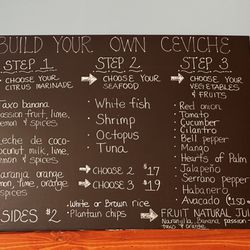 BUILD YOUR OWN CEVICHE
STEP 1
CHOOSE YOUR
CITRUS MARINADE
Taco banana
passion fruit, lime,
lemon & spices
leche de coco-
lime, lemon
& spices
naranja orange
lemon, lime, orange
& spices
SIDES $2
STEP 2
CHOOSE YOUR
SEAFOOD
• White fish
• Shrimp
• Octopus
• Tuna
CHOOSE 2 $17
CHOOSE 3 $19
• White or Brown rice
• Plantain chips
STEP 3
CHOOSE YOUR
VEGETABLES
& FRUITS
• Red onion
• Tomato
• Cucumber
• Cilantro
• Bell pepper
• Mango
• Hearts of Palm
• Jalapeño
• Serrano pepper
• Habanero
• Avocado
FRUIT NATURAL JU
Naranjilla, banana, passion